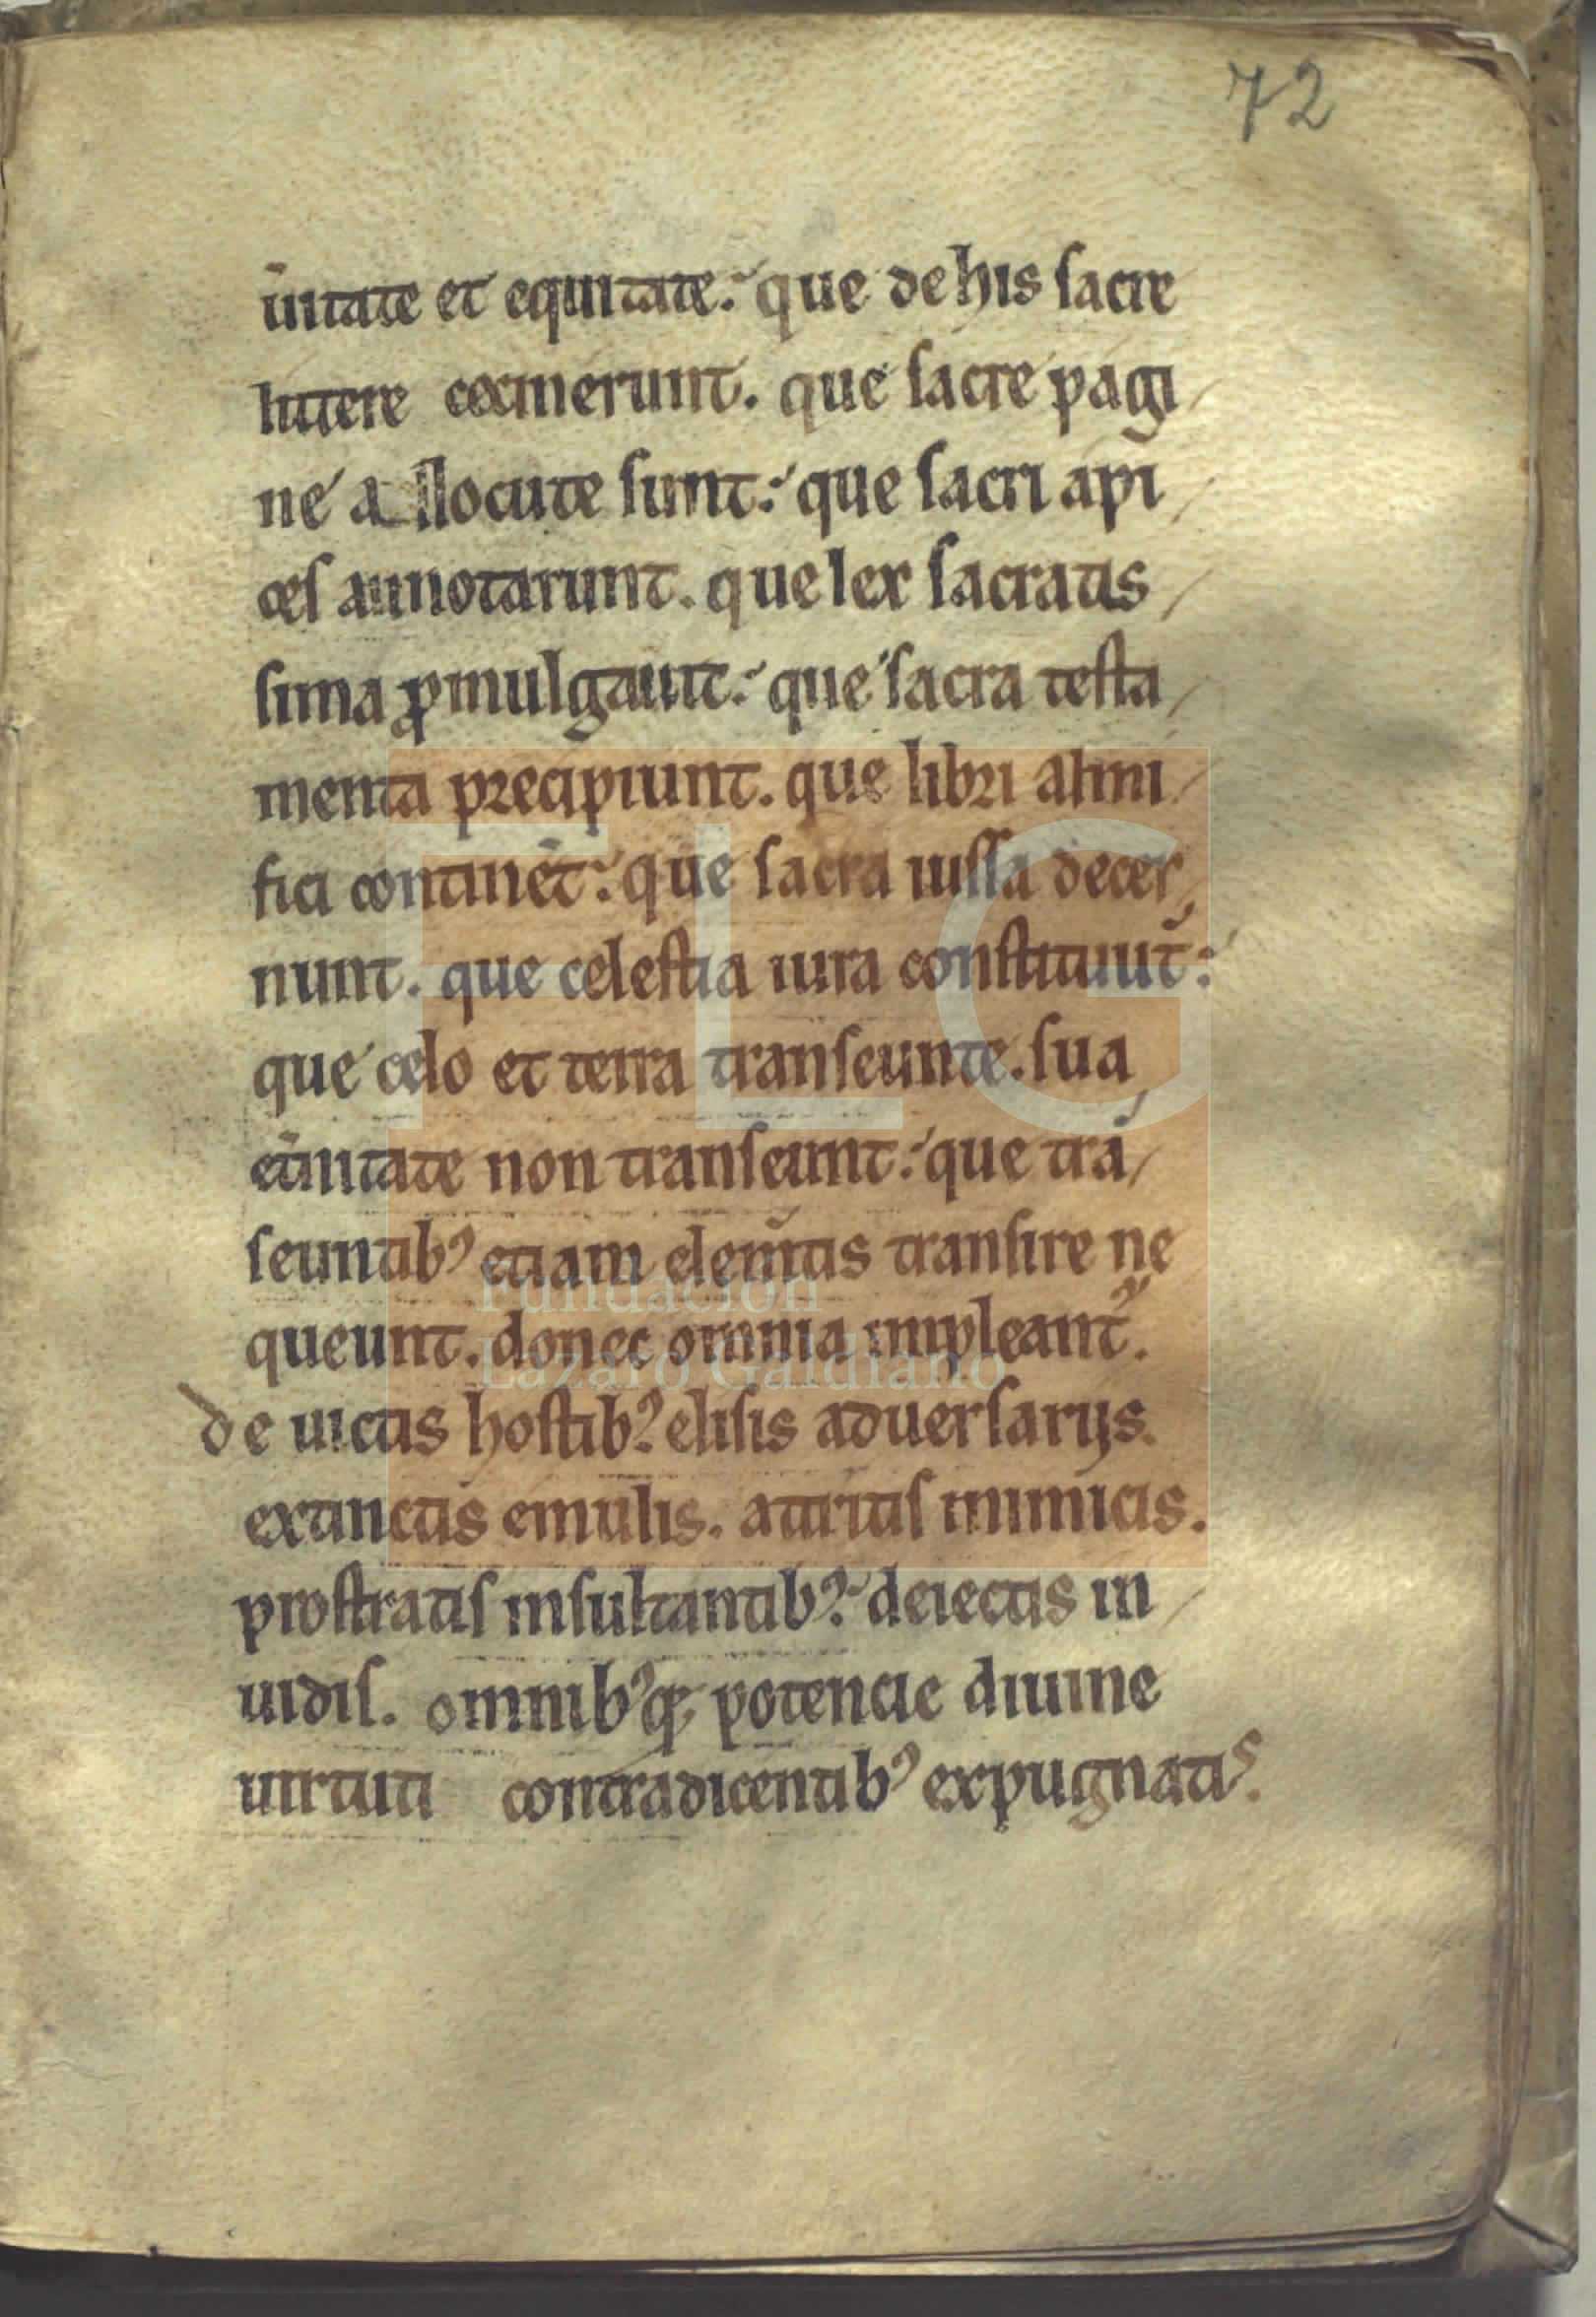 72
ũitate et equitate. que de his sacre
littere cecinerunt. que sacre pagi
ne allocute sunt. que sacri api
ces annotarunt. que lex sacratis
sima ꝓmulgauit. que sacra testa
menta precipiunt. que libri almi
fici continēt. que sacra iussa decer
nunt. que celestia iura constituūt.
que celo et terra transeunte. sua
et̃nitate non transeunt. que trā
seuntibꝰ etiam elem̃tis transire ne
queunt. donec omnia impleant᷑.
de uictis hostibꝰ. elisis aduersarijs.
extinctis emulis. attritis inimicis.
prostratis insultantibꝰ. deiectis in
uidis. omnibꝰqꝫ potencie diuine
uirtuti contradicentibꝰ expugnatis.
FLG
Fundación
Lázaro Galdiano